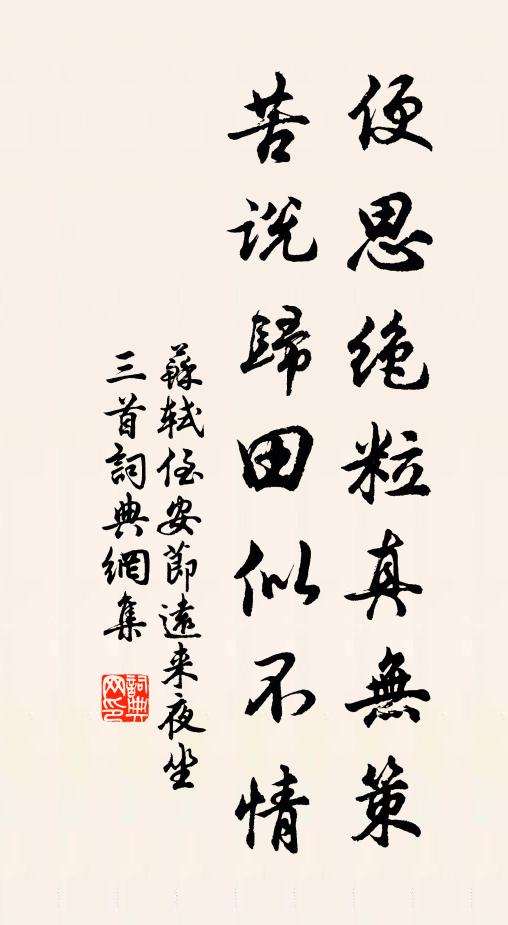 便思绝粒真無策
苦说歸田似不情
蘇軾侄安節遠来夜坐
三首詞典網集
詞典网印